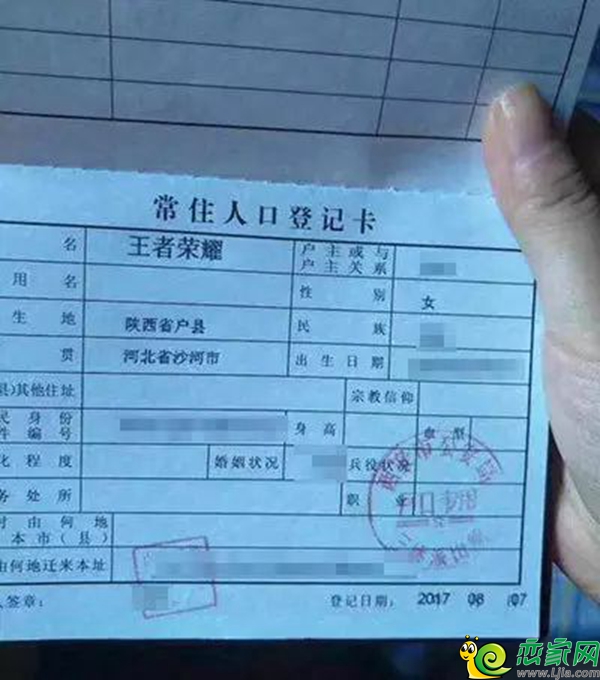 常住人口登记卡
名 王者荣耀 户主或与
户主关系
用名 性别 女
生地 陕西省户县 民族
贯 河北省沙河市 出生日期
县)其他住址 宗教信仰
民身份
件编号 身高 血型
化程度 婚姻状况 兵役状况
务处所 职业
时由何地
本市(县)
由何地迁来本址
人签章: 登记日期: 2017 08 07
恋家网
www.Ljia.com